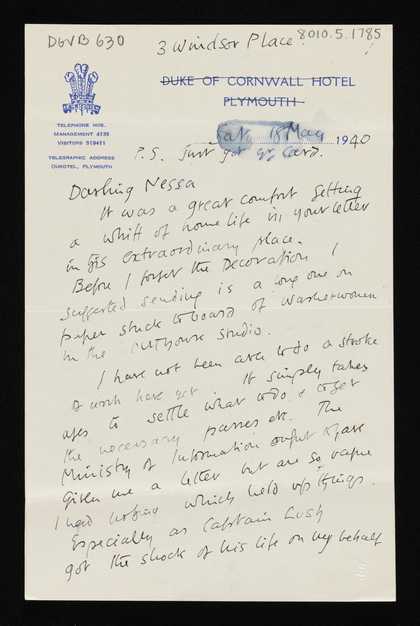 DGVB 630
8010.5.1785
3 Windsor Place.
DUKE OF CORNWALL HOTEL
PLYMOUTH
TELEPHONE NOS.
MANAGEMENT 4735
VISITORS
TELEGRAPHIC ADDRESS
DUHOTEL, PLYMOUTH
Sat. 18 May 1940
P.S. Just got yr card.
Darling Nessa
It was a great comfort getting
a whiff of home life in your letter
in this extraordinary place.
Before I forget the Decoration I
suggested sending is a long one on
paper stuck to board of washerwomen
in the outhouse studio.
I have not been able to do a stroke
of work here yet. It simply takes
ages to settle what to do & to get
the necessary passes etc. The
Ministry of Information ought to have
given me a letter but are so vague
I had nothing which held up things.
Especially as Captain Lush
got the shock of his life on my behalf